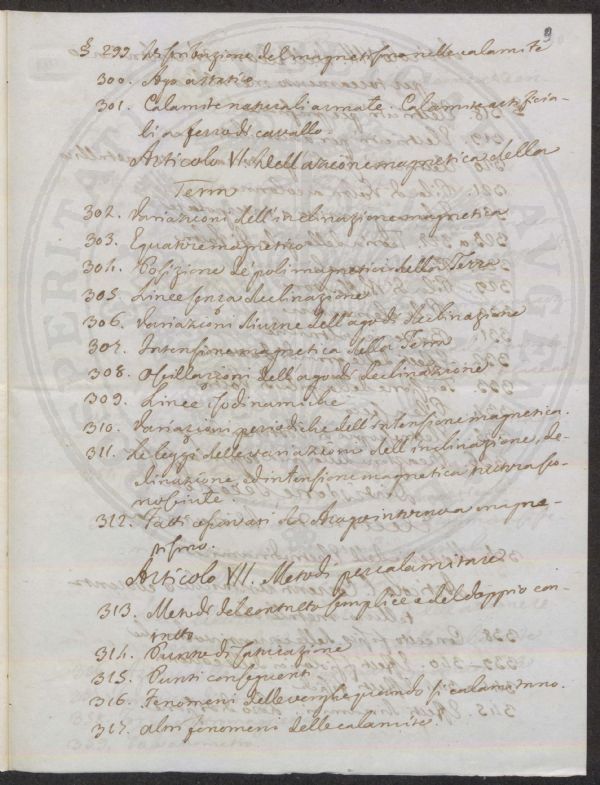 9
§. 299. Distribuzione del magnetismo nelle calamite
300. Ago astatico
301. Calamite naturali armate. Calamite artificia-
li a ferro di cavallo.
Articolo VI. Dell'azione magnetica della
Terra
302. Variazioni dell'inclinazione magnetica
303. Equatore magnetico
304. Posizione de' poli magnetici della Terra
305. Linee senza declinazione
306. Variazioni diurne dell'ago di declinazione
307. Intensione magnetica della Terra
308. Oscillazioni dell'ago di declinazione
309. Linee isodinamiche
310. Variazioni periodiche dell'intensione magnetica.
311. Le leggi delle variazioni dell'inclinazione, de-
clinazione, ed intensione magnetica tuttora sco-
nosciute
312. Fatti osservati da Arago intorno a magne-
tismo.
Articolo VII. Metodi per calamitare
313. Metodi del contatto semplice e del doppio con-
tatto
314. Punto di saturazione
315. Punti conseguenti
316. Fenomeni delle verghe quando si calamitano.
317. Altri fenomeni delle calamite.